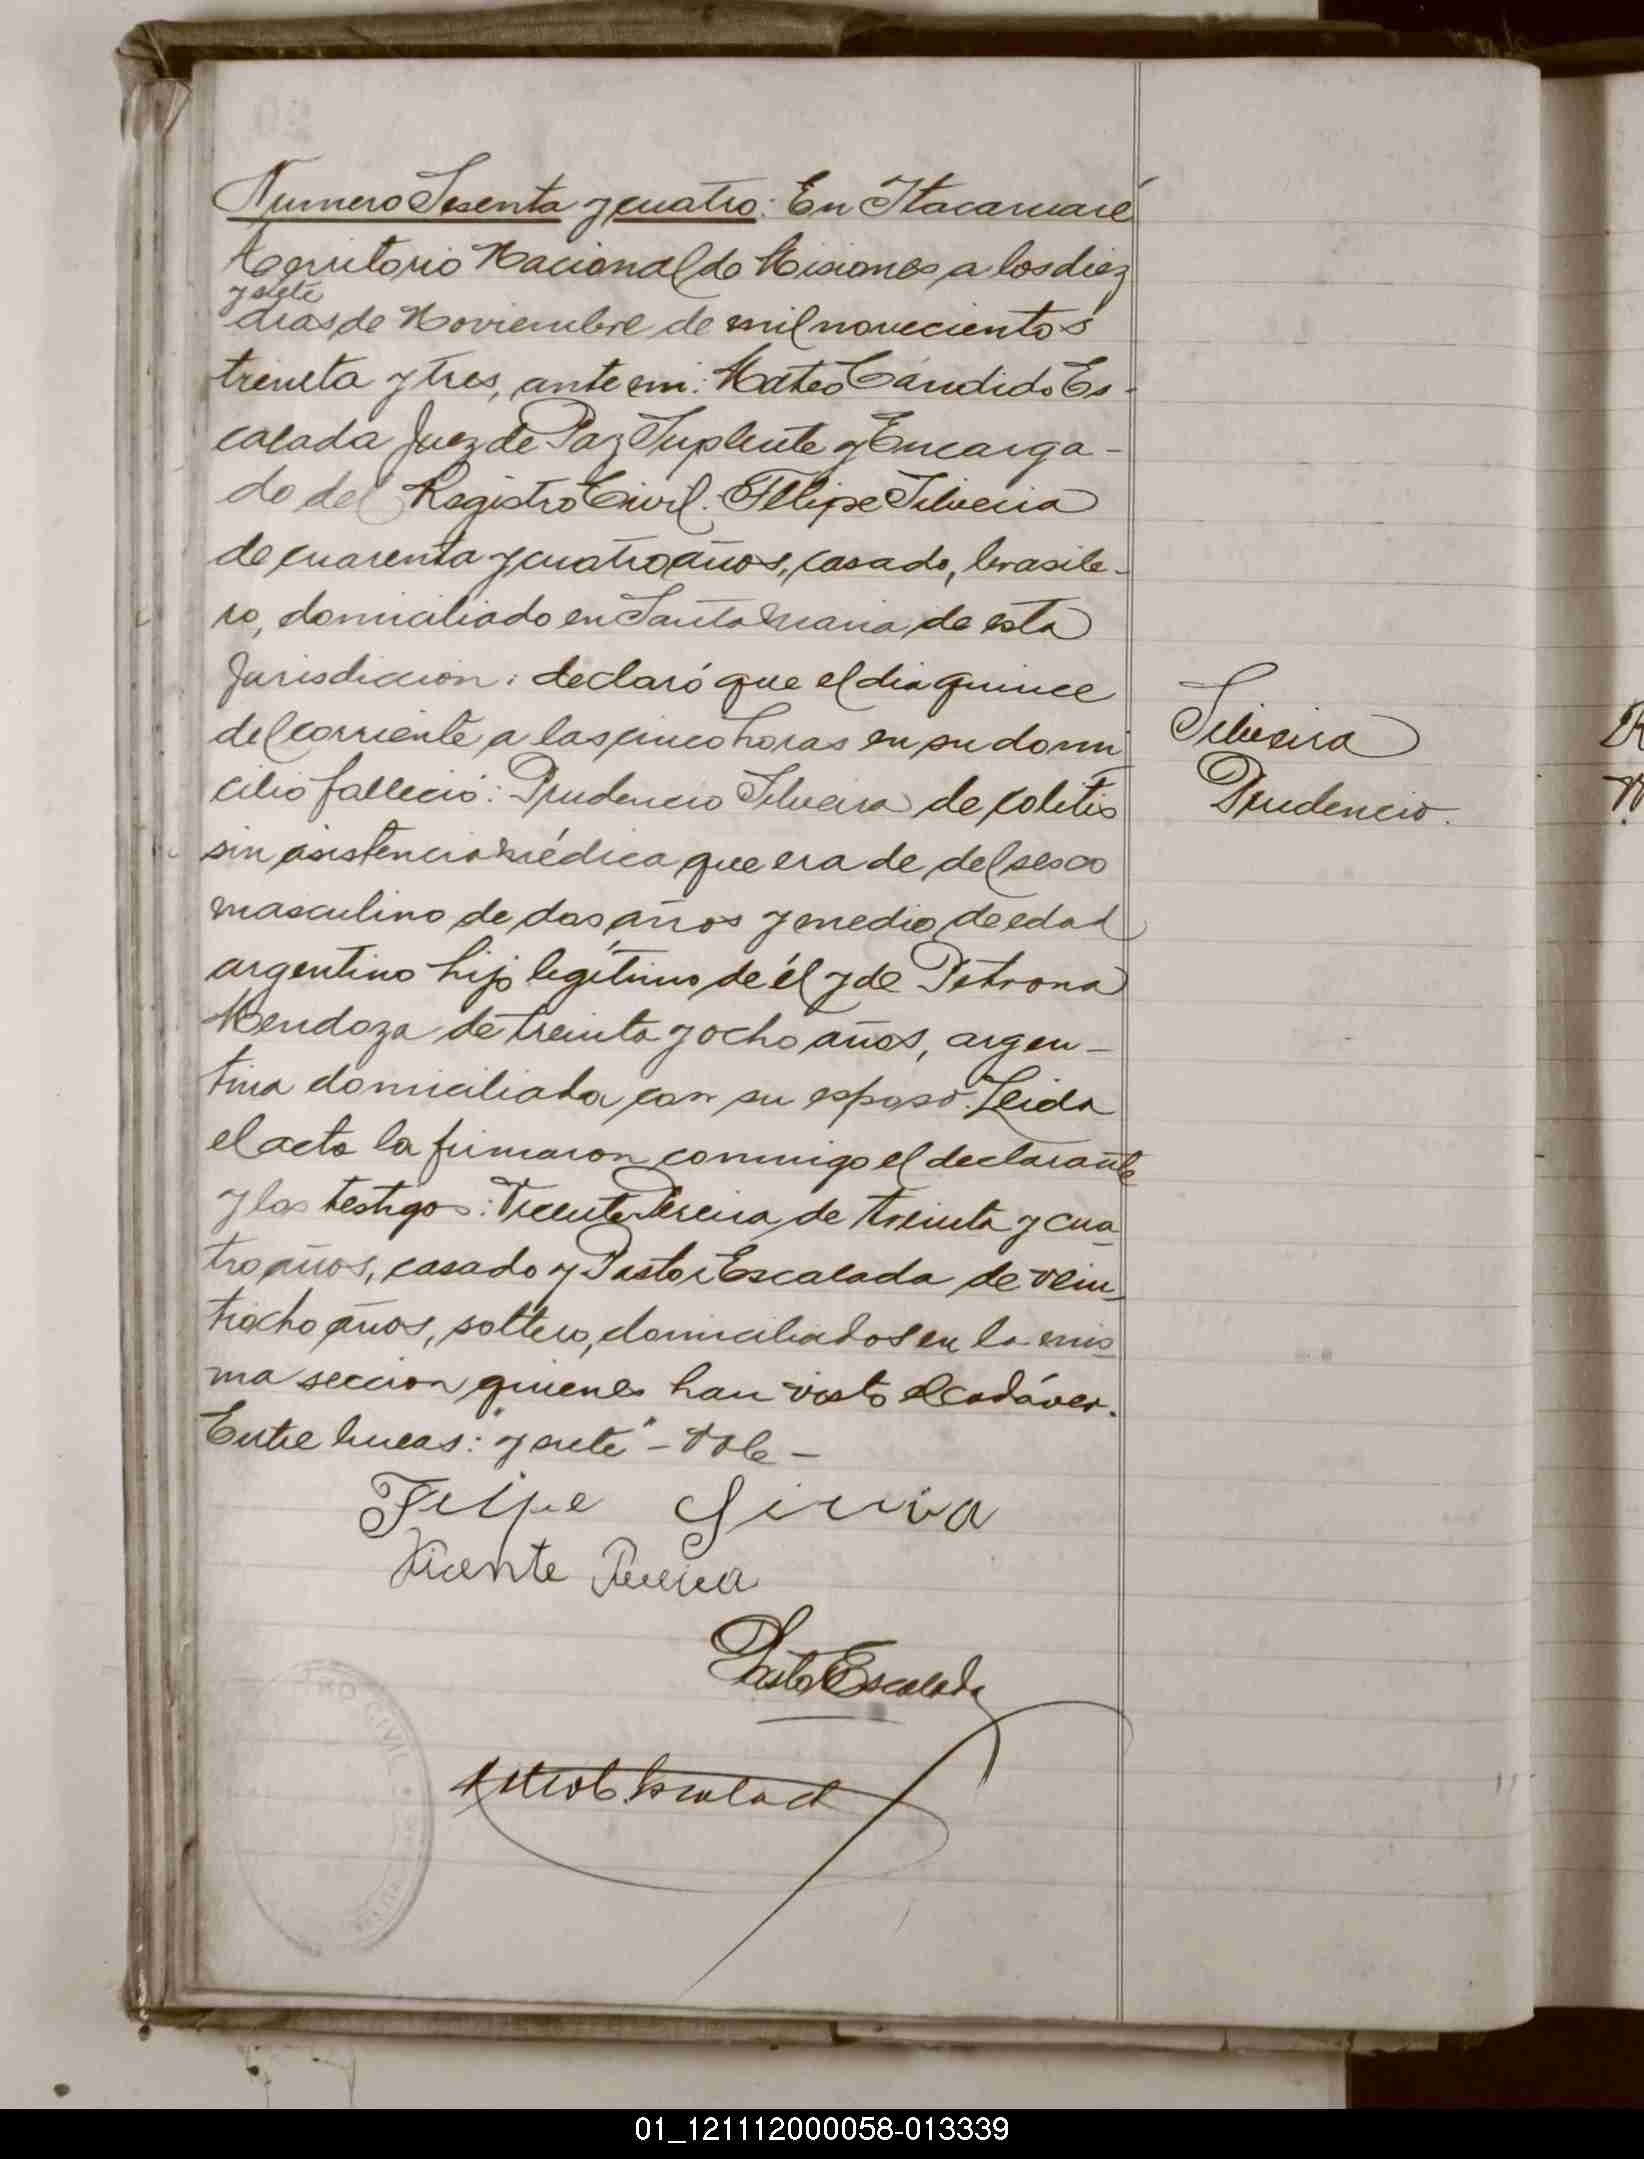 Numero Sesenta y cuatro: En Itacaruaré
Territorio Nacional de Misiones a los diez
y siete
dias de Noviembre de mil novecientos
treinta y tres, ante mi: Mateo Cándido Es-
calada Juez de Paz Suplente y Encarga-
do del Registro Civil. Felipe Silveira
de cuarenta y cuatro años, casado, brasile-
ro, domiciliado en Santa Maria de esta
Jurisdiccion: declaró que el dia quince
del corriente a las cinco horas en su domi
cilio falleció: Prudencio Silveira de colitis
sin asistencia médica que era de del sesco
masculino de dos años y medio de edad
argentino hijo legítimo de él y de Petrona
Mendoza de treinta y ocho años, argen-
tina domiciliada con su esposo. Leida
el acta la firmaron conmigo el declarante
y los testigos: Vicente Pereira de treinta y cua
tro años, casado y Pastor Escalada de vein
tiocho años, soltero, domiciliados en la mis
ma seccion quienes han visto el cadáver.
Entre lineas: "y siete" - Vale -
Silveira
Prudencio.
Felipe
Vicente Pereira
Pastor Escalada
RO CIVIL
01_121112000058-013339